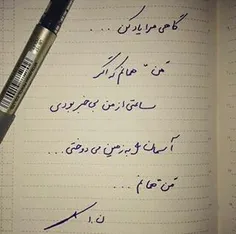 گاهی مرا یاد کن ...
من همانم که اگر
ساعتی از من بی خبر بودی
آسمان را به زمین می دوختی ...
من همانم ...